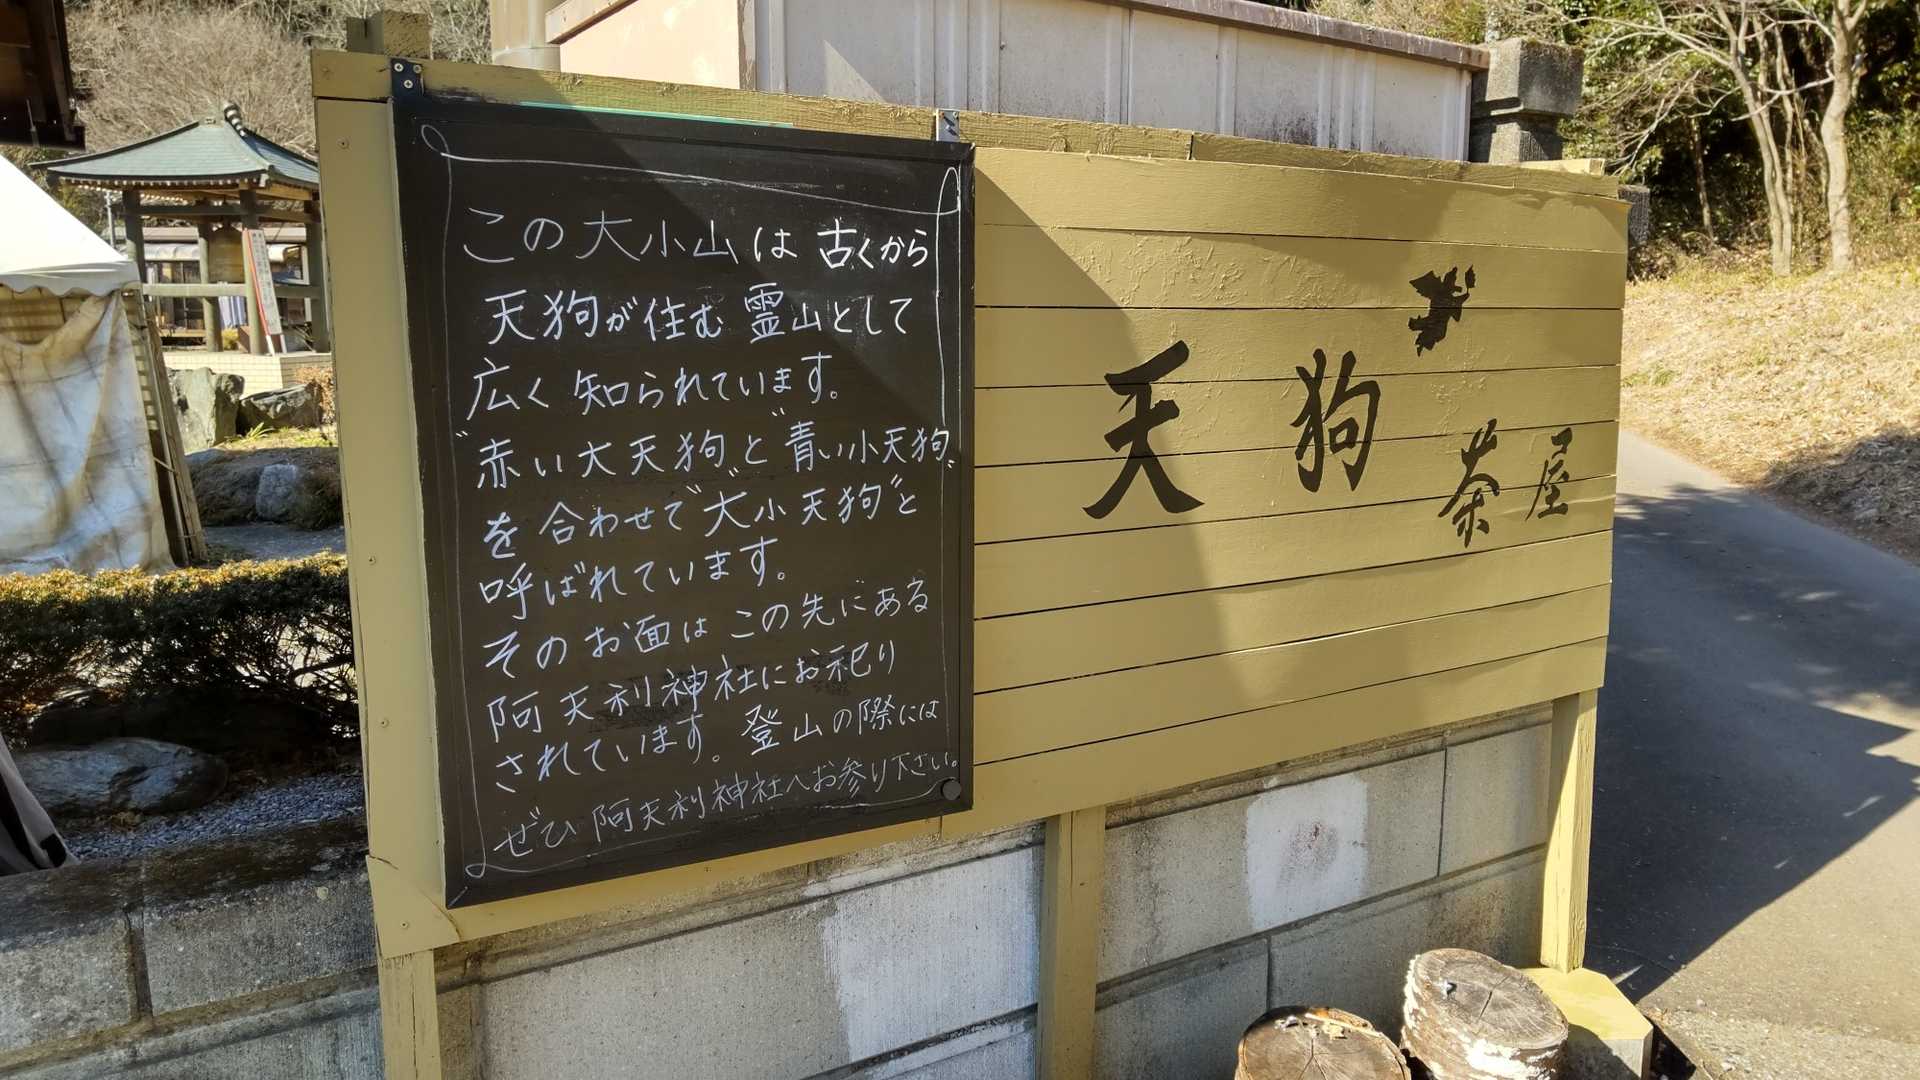 この大小山は古くから
天狗が住む霊山として
広く知られています。
"赤い大天狗と"青い小天狗"
を合わせで"大小天狗"と
呼ばれています。
そのお面はこの先にある
阿夫利神社にお祀り
されています。登山の際には
ぜひ阿夫利神社へお参り下さい。
天狗
茶屋